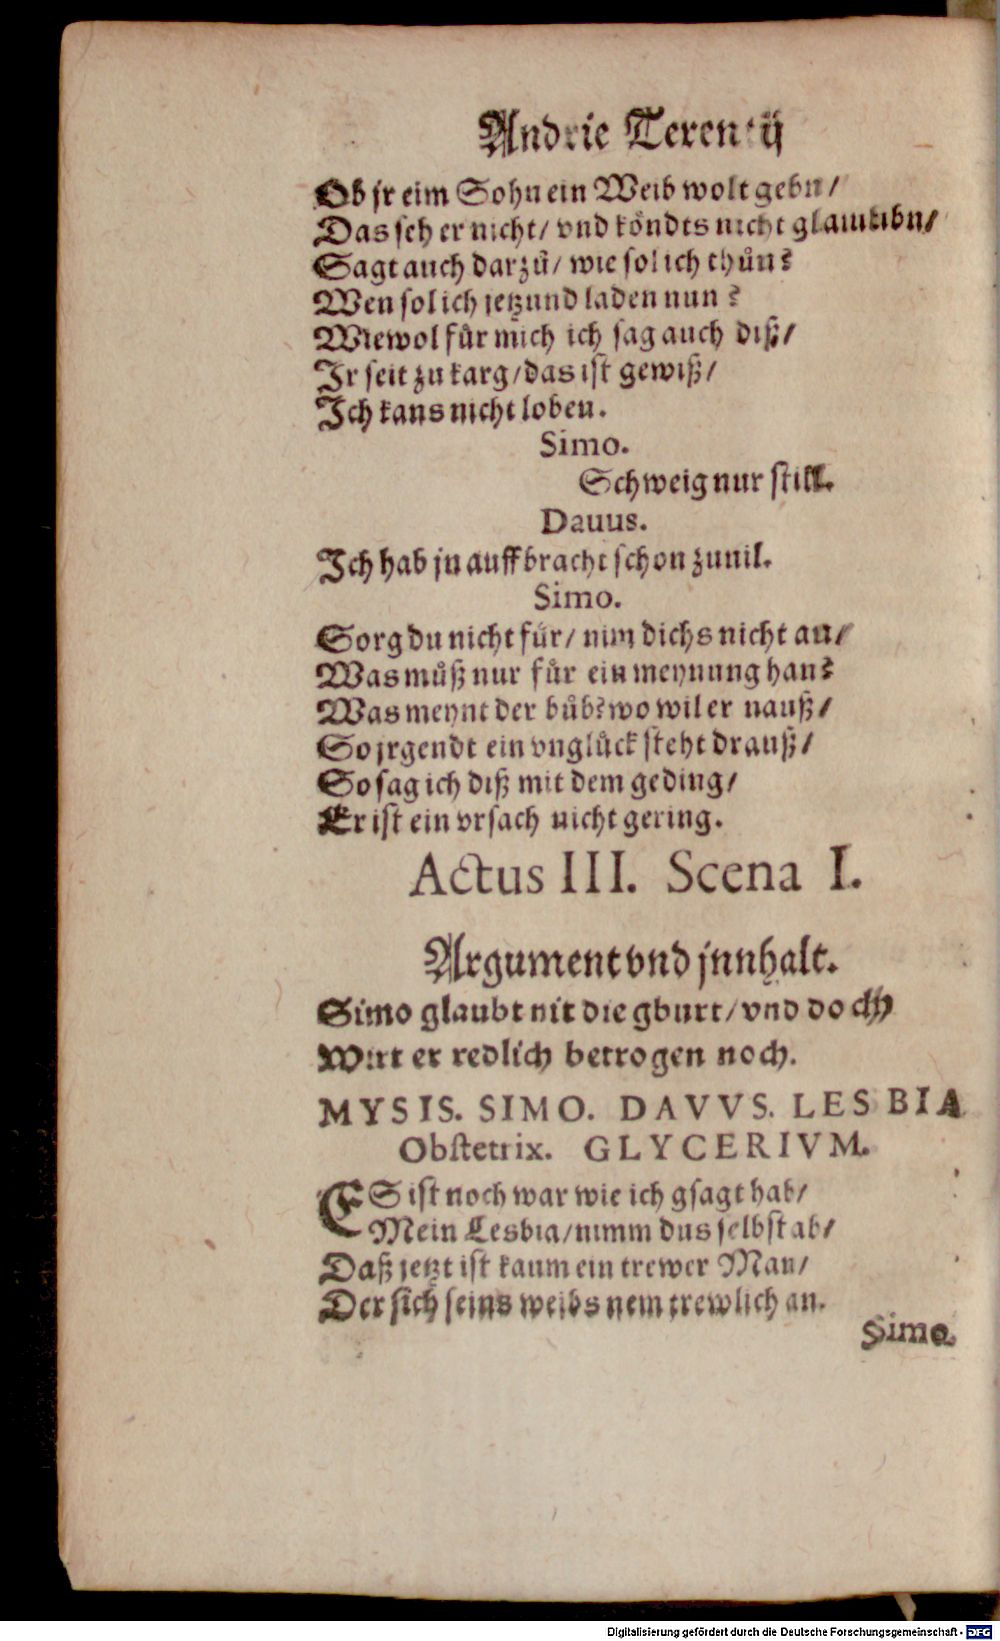 Andrie Terentij
Ob jr eim Sohn ein Weib wolt gebn/
Das seh er nicht/ vnd köndts nicht glaubn/
Sagt auch darzů/ wie sol ich thůn?
Wen sol ich jetzund laden nun?
Wiewol für mich ich sag auch diß/
Jr seit zu karg/ das ist gewiß/
Jch kans nicht loben.
Simo.
Schweig nur still.
Dauus.
Jch hab jn auffbracht schon zuuil.
Simo.
Sorg du nicht für/ nim dichs nicht an/
Was můß nur für ein meynung han?
Was meynt der bůb? wo wil er nauß/
So jrgendt ein vnglück steht drauß/
So sag ich diß mit dem geding/
Er ist ein vrsach nicht gering.
Actus III. Scena I.
Argument vnd jnnhalt.
Simo glaubt nit die gburt/ vnd doch
Wirt er redlich betrogen noch.
MYSIS. SIMO. DAVVS. LESBIA
Obstetrix. GLYCERIVM.
ES ist noch war wie ich gsagt hab/
Mein Lesbia/ nimm dus selbst ab/
Daß jetzt ist kaum ein trewer Man/
Der sich seins weibs nem trewlich an.
Simo.
Digitalisierung gefördert durch die Deutsche Forschungsgemeinschaft - DFG